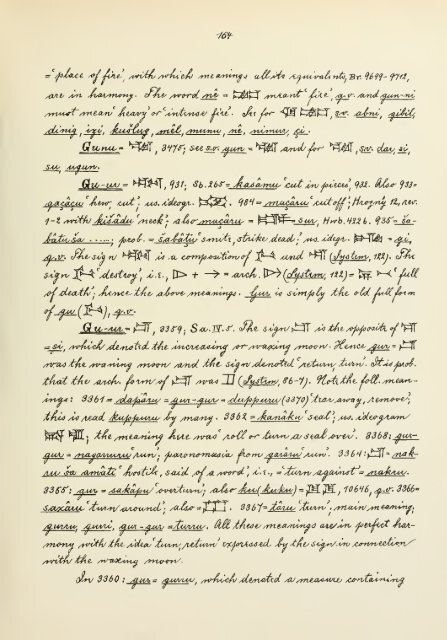 164
= 'place of fire', with which meanings all its equivalents, Br. 9699-9712,
are in harmony. The word nê = meant 'fire', q.v. and gun-ni
must mean 'heavy' or 'intense fire'. See for s.v. abni, gibil,
dinig, izi, kušlug, mêl, munu, nê, nimur, çi.
Gunu = 3475; see s.v. gun = and for s.v. dar, si,
su, ugun.
Gu-ur = 931; Sb. 265 = kasâmu 'cut in pieces', 932. Also 933 =
gaçâçu 'hew, cut'; us. ideogr. 934 = maçâru 'cut off'; Hrozný 12, rev.
1-2 with kišâdu 'neck'; also maçâru = sur, Hwb. 422b. 935 = ša-
bâtu ša ......; prob. = šabâtu 'smite, strike dead,' us. idegr. = gi,
q.v. The sign is a composition of und (System, 122). The
sign 'destroy', i.e., + = arch. (System, 122) = 'full
of death'; hence the above meanings. Gur is simply the old full form
of gu ( ), q.v.
Gu-ur = 3359; Sa. IV. 5. The sign is the opposite of
= si, which denoted the increasing or waxing moon. Hence gur =
was the waning moon and the sign denoted 'return, turn'. It is prob.
that the arch. form of was (System, 86-7). Note the foll. mean-
ings: 3361 = dapâru = gur-gur = duppuru (3370) 'tear away, remove';
this is read kuppuru by many. 3362 = kanâku 'seal'; us. ideogram
; the meaning here was 'roll or turn a seal over'. 3368: gur-
gur = nagarruru 'run'; paronomasia from garâru 'run'. 3364: = nak-
ru ša amâti 'hostile, said of a word', i.e., = 'turn against' = nakru.
3365: gur = sakâpu 'overturn'; also ku (kuku) = 10646, q.v. 3366 =
saxâru 'turn around'; also = 3367 = târu 'turn'; main meaning,
gurru, guri, gur-gur = turru. All these meanings are in perfect har-
mony with the idea 'turn, return' expressed by the sign in connection
with the waxing moon.
In 3360: gur = gurru, which denoted a measure containing